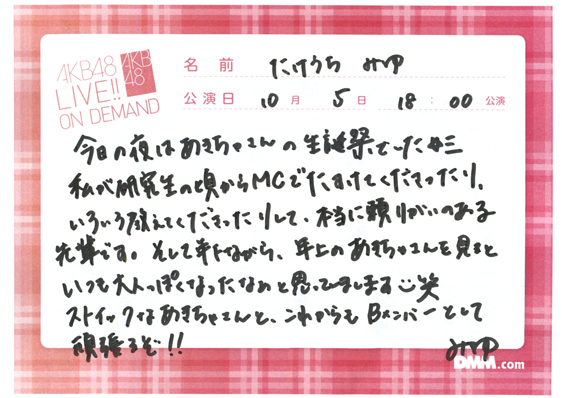 AKB48
LIVE!!
ON DEMAND
AKB
48
名前 たけうち みゆ
公演日 10月 5日 18:00公演
今日の夜はあきちゃさんの生誕祭でした
私が研究生の頃からMCでたすけてくださったり、
いろいろ教えてくださったりして、本当に頼りがいのある
先輩です。そして年下ながら、年上のあきちゃさんを見ると
いつも大人っぽくなったなぁと思っています 笑
ストイックなあきちゃさんと、これからもBメンバーとして
頑張るぞ!!
みゆ
DMM.com